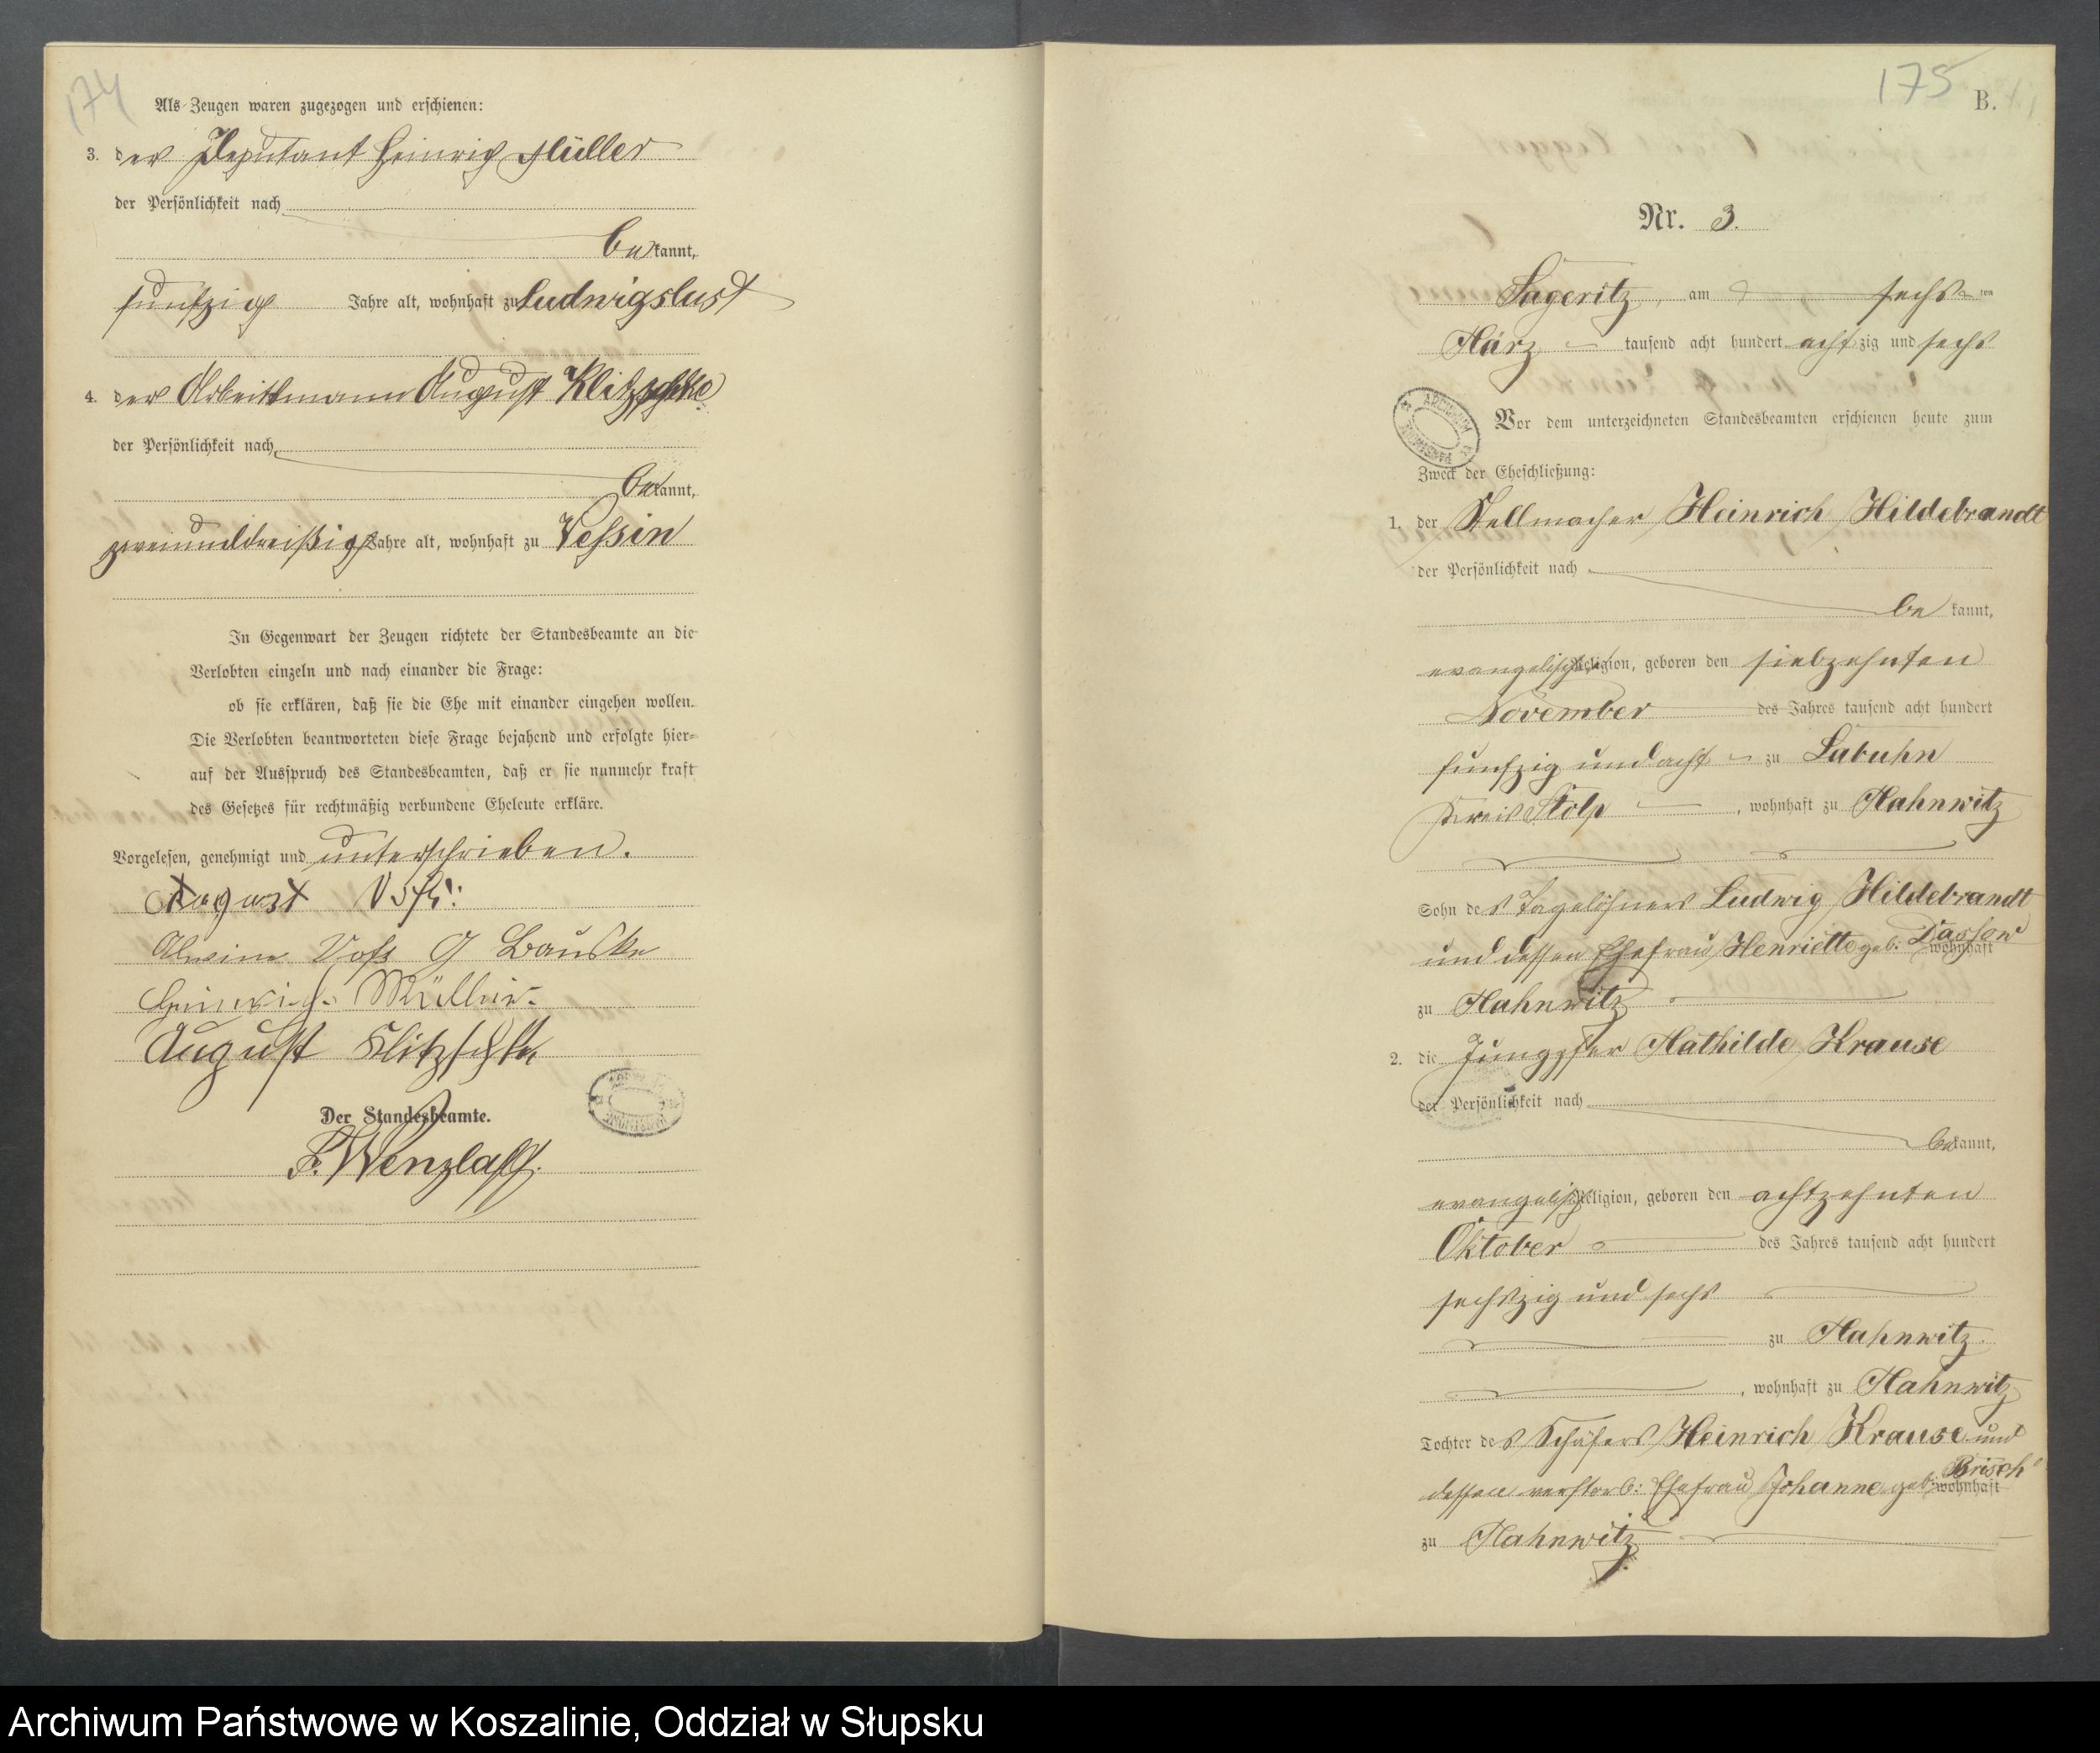 174
Als Zeugen waren zugezogen und erschienen:
3. der Deputant Heinrich Müller
der Persönlichkeit nach
be kannt,
funfzig Jahre alt, wohnhaft zu Ludwigslust
4. der Arbeitsmann August Klitzschke
der Persönlichkeit nach
be kannt,
zweiunddreißig Jahre alt, wohnhaft zu Veßin
In Gegenwart der Zeugen richtete der Standesbeamte an die
Verlobten einzeln und nach einander die Frage:
ob sie erklären, daß sie die Ehe mit einander eingehen wollen.
Die Verlobten beantworteten diese Frage bejahend und erfolgte hier-
auf der Ausspruch des Standesbeamten, daß er sie nunmehr kraft
des Gesetzes für rechtmäßig verbundene Eheleute erkläre.
Vorgelesen, genehmigt und unterschrieben.
August Voß
Alwine Voß G Bauske
Heinrich Müller
August Klitzschke
Der Standesbeamte.
F. Wenzlaff.
175
B.
Nr. 3.
Sageritz, am sechs ten
März tausend acht hundert achtzig und sechs
Vor dem unterzeichneten Standesbeamten erschienen heute zum
Zweck der Eheschließung:
1. der Stellmacher Heinrich Hildebrandt
der Persönlichkeit nach
be kannt,
evangelischer Religion, geboren den siebzehnten
November des Jahres tausend acht hundert
funfzig und acht zu Labuhn
Kreis Stolp, wohnhaft zu Mahnwitz
Sohn des Tagelöhners Ludwig Hildebrandt
und dessen Ehefrau Henriette geb: Dassow wohnhaft
zu Mahnwitz
2. die Jungfer Mathilde Krause
der Persönlichkeit nach
be kannt,
evangelisch Religion, geboren den achtzehnten
Oktober des Jahres tausend acht hundert
sechszig und sechs
zu Mahnwitz
, wohnhaft zu Mahnwitz
Tochter des Schäfers Heinrich Krause und
dessen verstorb: Ehefrau Johanne geb: Brisch wohnhaft
zu Mahnwitz
Archiwum Państwowe w Koszalinie, Oddział w Słupsku